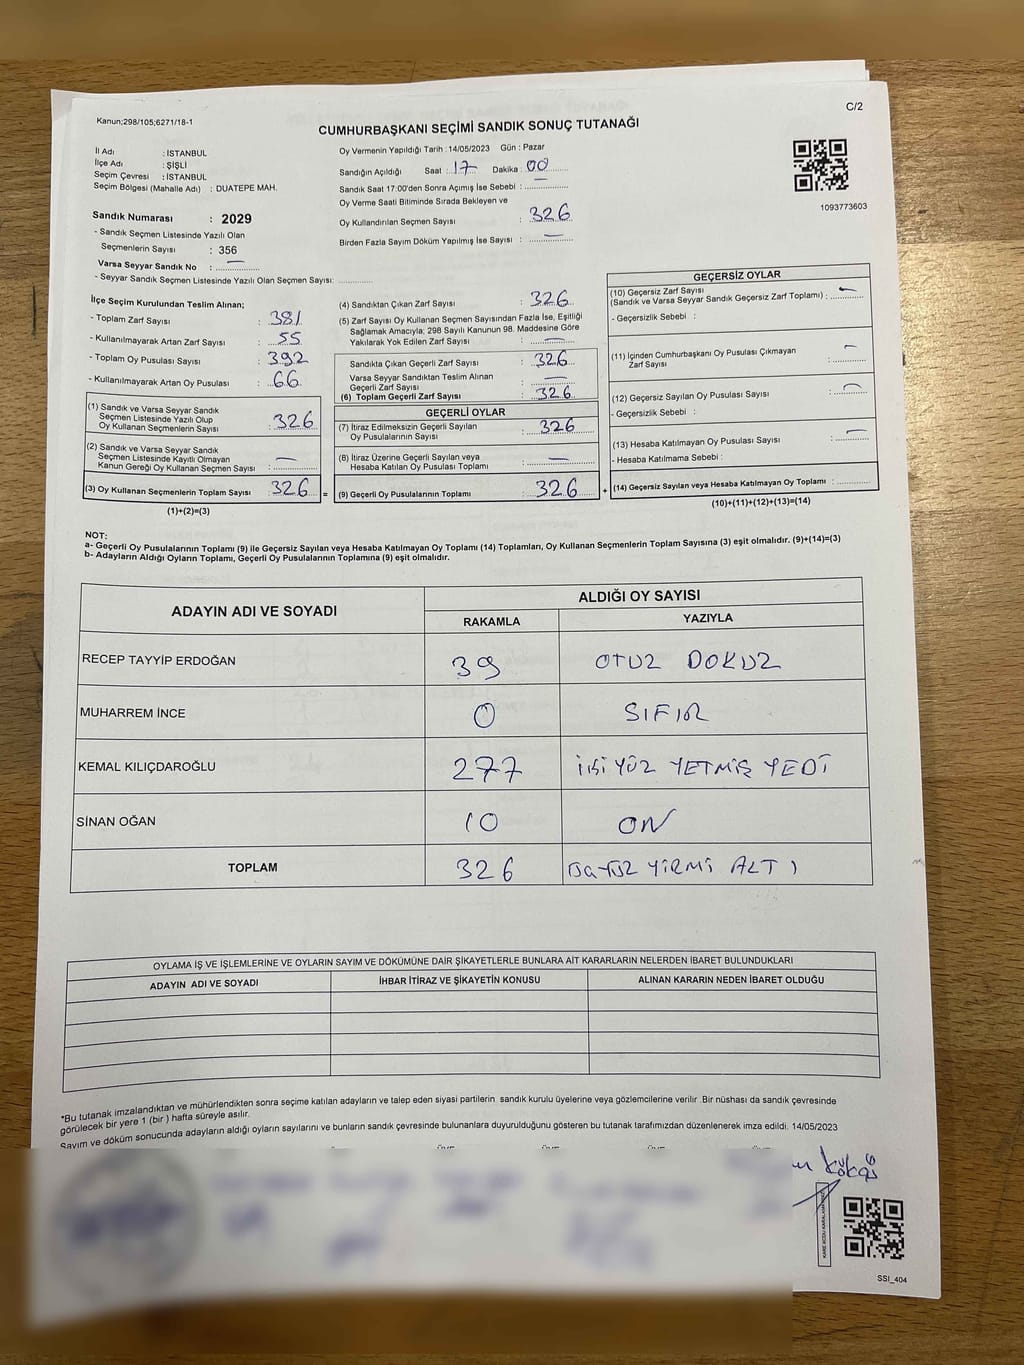 C/2
Kanun;298/105;6271/18-1
CUMHURBAŞKANI SEÇİMİ SANDIK SONUÇ TUTANAĞI
İl Adı : İSTANBUL
İlçe Adı : ŞİŞLİ
Seçim Çevresi : İSTANBUL
Seçim Bölgesi (Mahalle Adı) : DUATEPE MAH.
Sandık Numarası : 2029
- Sandık Seçmen Listesinde Yazılı Olan
Seçmenlerin Sayısı : 356
Varsa Seyyar Sandık No : —
- Seyyar Sandık Seçmen Listesinde Yazılı Olan Seçmen Sayısı: ..............
Oy Vermenin Yapıldığı Tarih : 14/05/2023 Gün : Pazar
Sandığın Açıldığı Saat : 17 Dakika : 00
Sandık Saat 17:00'den Sonra Açımış İse Sebebi : —
Oy Verme Saati Bitiminde Sırada Bekleyen ve
Oy Kullandırılan Seçmen Sayısı : 326
Birden Fazla Sayım Döküm Yapılmış İse Sayısı : —
1093773603
İlçe Seçim Kurulundan Teslim Alınan;
- Toplam Zarf Sayısı : 381
- Kullanılmayarak Artan Zarf Sayısı : 55
- Toplam Oy Pusulası Sayısı : 392
- Kullanılmayarak Artan Oy Pusulası : 66
(1) Sandık ve Varsa Seyyar Sandık
Seçmen Listesinde Yazılı Olup
Oy Kullanan Seçmenlerin Sayısı : 326
(2) Sandık ve Varsa Seyyar Sandık
Seçmen Listesinde Kayıtlı Olmayan
Kanun Gereği Oy Kullanan Seçmen Sayısı : —
(3) Oy Kullanan Seçmenlerin Toplam Sayısı : 326 =
(1)+(2)=(3)
(4) Sandıktan Çıkan Zarf Sayısı : 326
(5) Zarf Sayısı Oy Kullanan Seçmen Sayısından Fazla İse, Eşitliği
Sağlamak Amacıyla; 298 Sayılı Kanunun 98. Maddesine Göre
Yakılarak Yok Edilen Zarf Sayısı : —
Sandıkta Çıkan Geçerli Zarf Sayısı : 326
Varsa Seyyar Sandıktan Teslim Alınan
Geçerli Zarf Sayısı : —
(6) Toplam Geçerli Zarf Sayısı : 326
GEÇERLİ OYLAR
(7) İtiraz Edilmeksizin Geçerli Sayılan
Oy Pusulalarının Sayısı : 326
(8) İtiraz Üzerine Geçerli Sayılan veya
Hesaba Katılan Oy Pusulası Toplamı : —
(9) Geçerli Oy Pusulalarının Toplamı : 326 +
GEÇERSİZ OYLAR
(10) Geçersiz Zarf Sayısı
(Sandık ve Varsa Seyyar Sandık Geçersiz Zarf Toplamı) : —
- Geçersizlik Sebebi :
(11) İçinden Cumhurbaşkanı Oy Pusulası Çıkmayan
Zarf Sayısı : —
(12) Geçersiz Sayılan Oy Pusulası Sayısı : —
- Geçersizlik Sebebi :
(13) Hesaba Katılmayan Oy Pusulası Sayısı : —
- Hesaba Katılmama Sebebi :
(14) Geçersiz Sayılan veya Hesaba Katılmayan Oy Toplamı : ............
(10)+(11)+(12)+(13)=(14)
NOT:
a- Geçerli Oy Pusulalarının Toplamı (9) ile Geçersiz Sayılan veya Hesaba Katılmayan Oy Toplamı (14) Toplamları, Oy Kullanan Seçmenlerin Toplam Sayısına (3) eşit olmalıdır. (9)+(14)=(3)
b- Adayların Aldığı Oyların Toplamı, Geçerli Oy Pusulalarının Toplamına (9) eşit olmalıdır.
ADAYIN ADI VE SOYADI ALDIĞI OY SAYISI
RAKAMLA YAZIYLA
RECEP TAYYİP ERDOĞAN 39 OTUZ DOKUZ
MUHARREM İNCE 0 SIFIR
KEMAL KILIÇDAROĞLU 277 İKİ YÜZ YETMİŞ YEDİ
SİNAN OĞAN 10 ON
TOPLAM 326 YİRMİ ALTI
OYLAMA İŞ VE İŞLEMLERİNE VE OYLARIN SAYIM VE DÖKÜMÜNE DAİR ŞİKAYETLERLE BUNLARA AİT KARARLARIN NELERDEN İBARET BULUNDUKLARI
ADAYIN ADI VE SOYADI İHBAR İTİRAZ VE ŞİKAYETİN KONUSU ALINAN KARARIN NEDEN İBARET OLDUĞU
*Bu tutanak imzalandıktan ve mühürlendikten sonra seçime katılan adayların ve talep eden siyasi partilerin sandık kurulu üyelerine veya gözlemcilerine verilir .Bir nüshası da sandık çevresinde
görülecek bir yere 1 (bir ) hafta süreyle asılır.
Sayım ve döküm sonucunda adayların aldığı oyların sayılarını ve bunların sandık çevresinde bulunanlara duyurulduğunu gösteren bu tutanak tarafımızdan düzenlenerek imza edildi. 14/05/2023
SSI_404